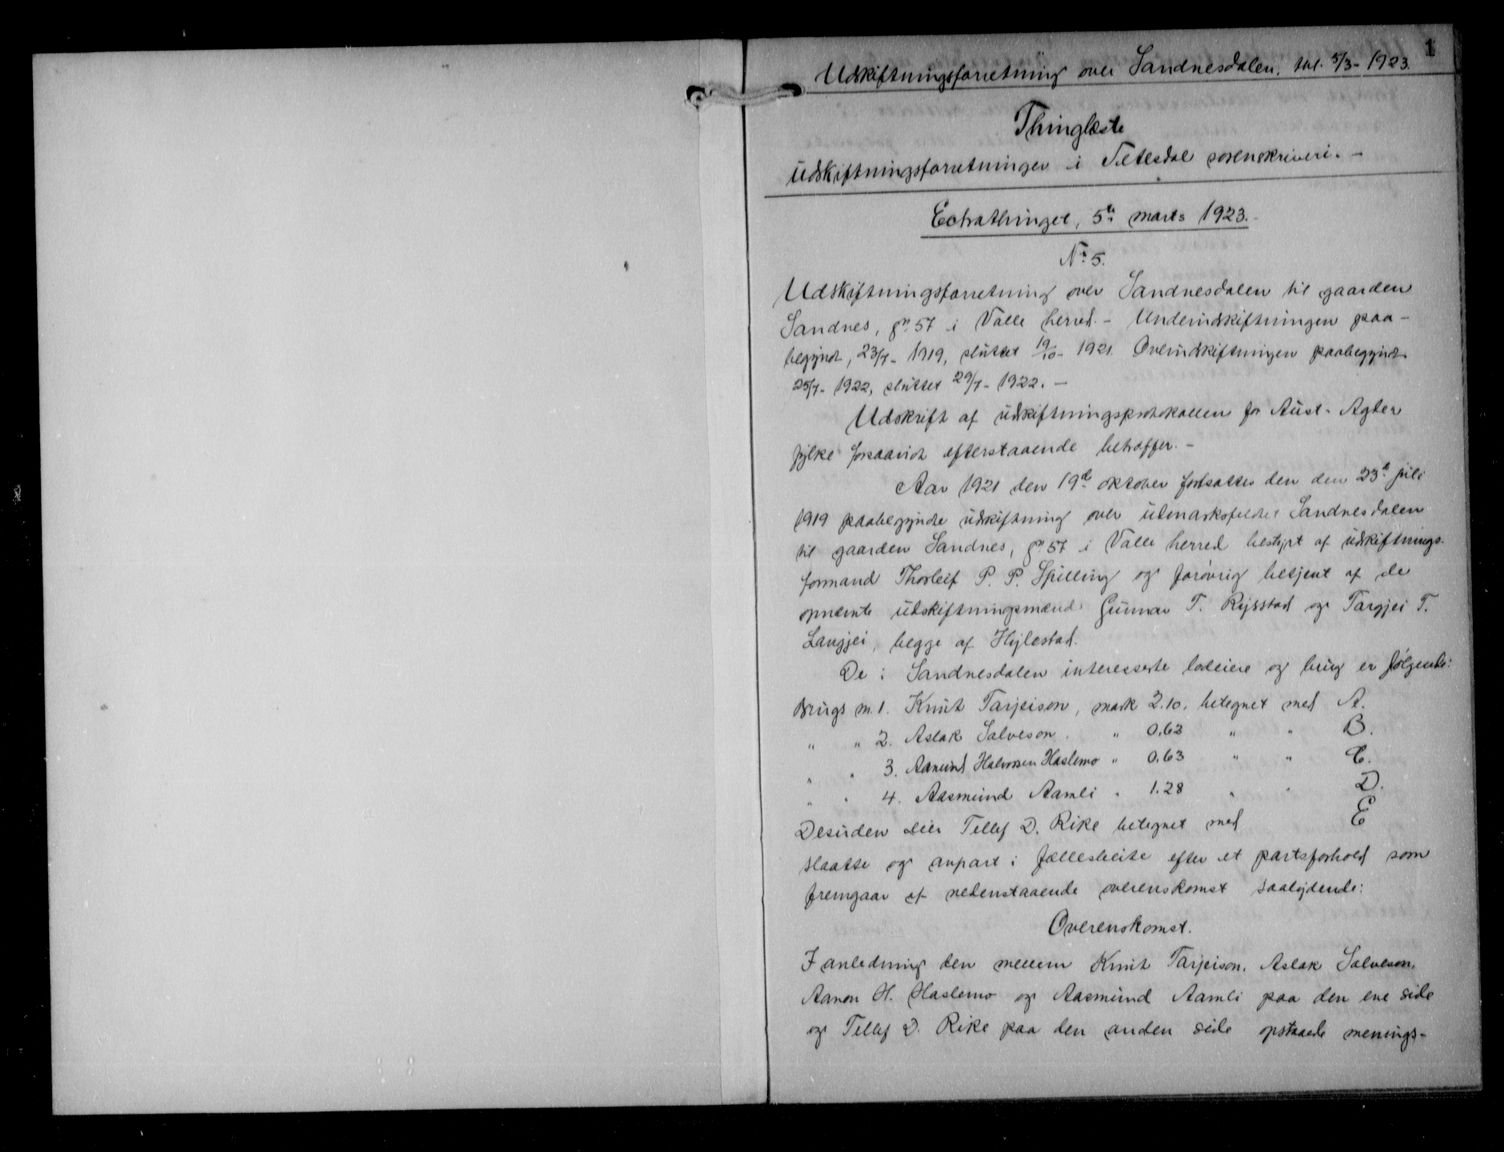 1
Udskiftningsforretning over Sandnesdalen. tnl. 5/3- 1923.
Thinglæste
udskiftningsforretninger i Sætesdal sorenskriveri. –
Extrathinget, 5te marts 1923.
No 5.
Udskiftningsforretning over Sandnesdalen til gaarden
Sandnes, gn. 57 i Valle herred. – Underudskiftningen paa-
begyndt, 23/7- 1919, sluttet 19/10- 1921. Overudskiftningen paabegyndt
25/7- 1922, sluttet 29/7- 1922. –
Udskrift af udskiftningsprotokollen for Aust-Agder
fylke forsaavidt efterstaaende betræffer. –
Aar 1921 den 19de oktober fortsattes den den 23de juli
1919 paabegyndte udskiftning over utmarksfeltet Sandnesdalen
til gaarden Sandnes, gn 57 i Valle herred bestyrt af udskiftnings-
formand Thorleif P. P. Spilling og forøvrig betjent af de
opnævnte udskiftningsmænd Gunnar T. Rysstad og Targjei T.
Langjei, begge af Hylestad.
De i Sandnesdalen interesserte lodeiere og brug er følgende:
Brugs nr. 1. Knut Tarjeison, mark 2.10. betegnet med A.
" " 2. Aslak Salveson. " 0.63 " " B.
" " 3. Aanund Halvorsen Haslemo " 0.63 " " C.
" " 4. Aasmund Aamli " 1.28 " " D.
Desuden eier Tellef D. Rike betegnet med E
slaatte og anpart i fællesbeite efter et partsforhold som
fremgaar af nedenstaaende overenskomst saalydende:
Overenskomst.
I anledning den mellem Knut Tarjeison, Aslak Salveson,
Aanon H. Haslemo og Aasmund Aamli paa den ene side
og Tellef D. Rike paa den anden side opstaaede menings-